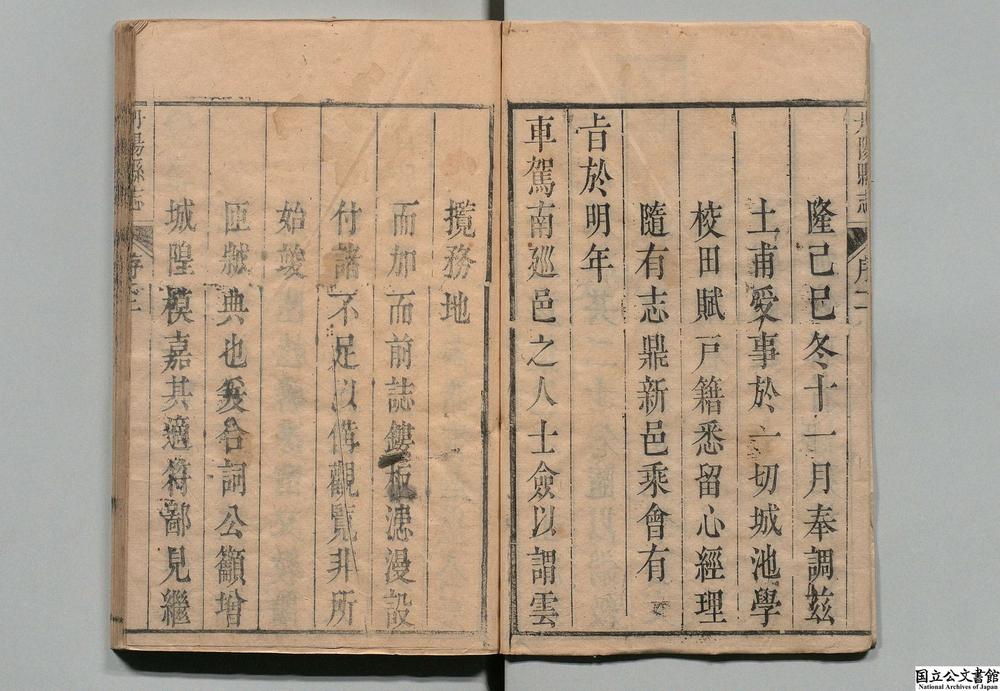 隆己巳冬十一月奉調茲
土甫愛事於一切城池學
校田賦戸籍悉留心經理
隨有志鼎新邑乘會有
㫖於明年
車駕南廵邑之人士僉以謂雲
攬務地
而加而前誌鏤板漶漫設
付諸不足以備觀覧非所
始竣
臣獻典也爰合詞公籲增
城隍模嘉其適符鄙見繼
丹陽縣志
序二
丹陽縣志
国立公文書館
National Archives of Japan